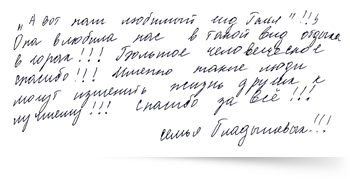 „А вот наш любимый гид Галя"!!!
Она влюбила нас в такой вид отдыха
в горах!!! Большое человеческое
спасибо!!! Именно такие люди
могут изменить жизнь других к
лучшему!!! Спасибо за всё!!!
семья Гладышевых!!!